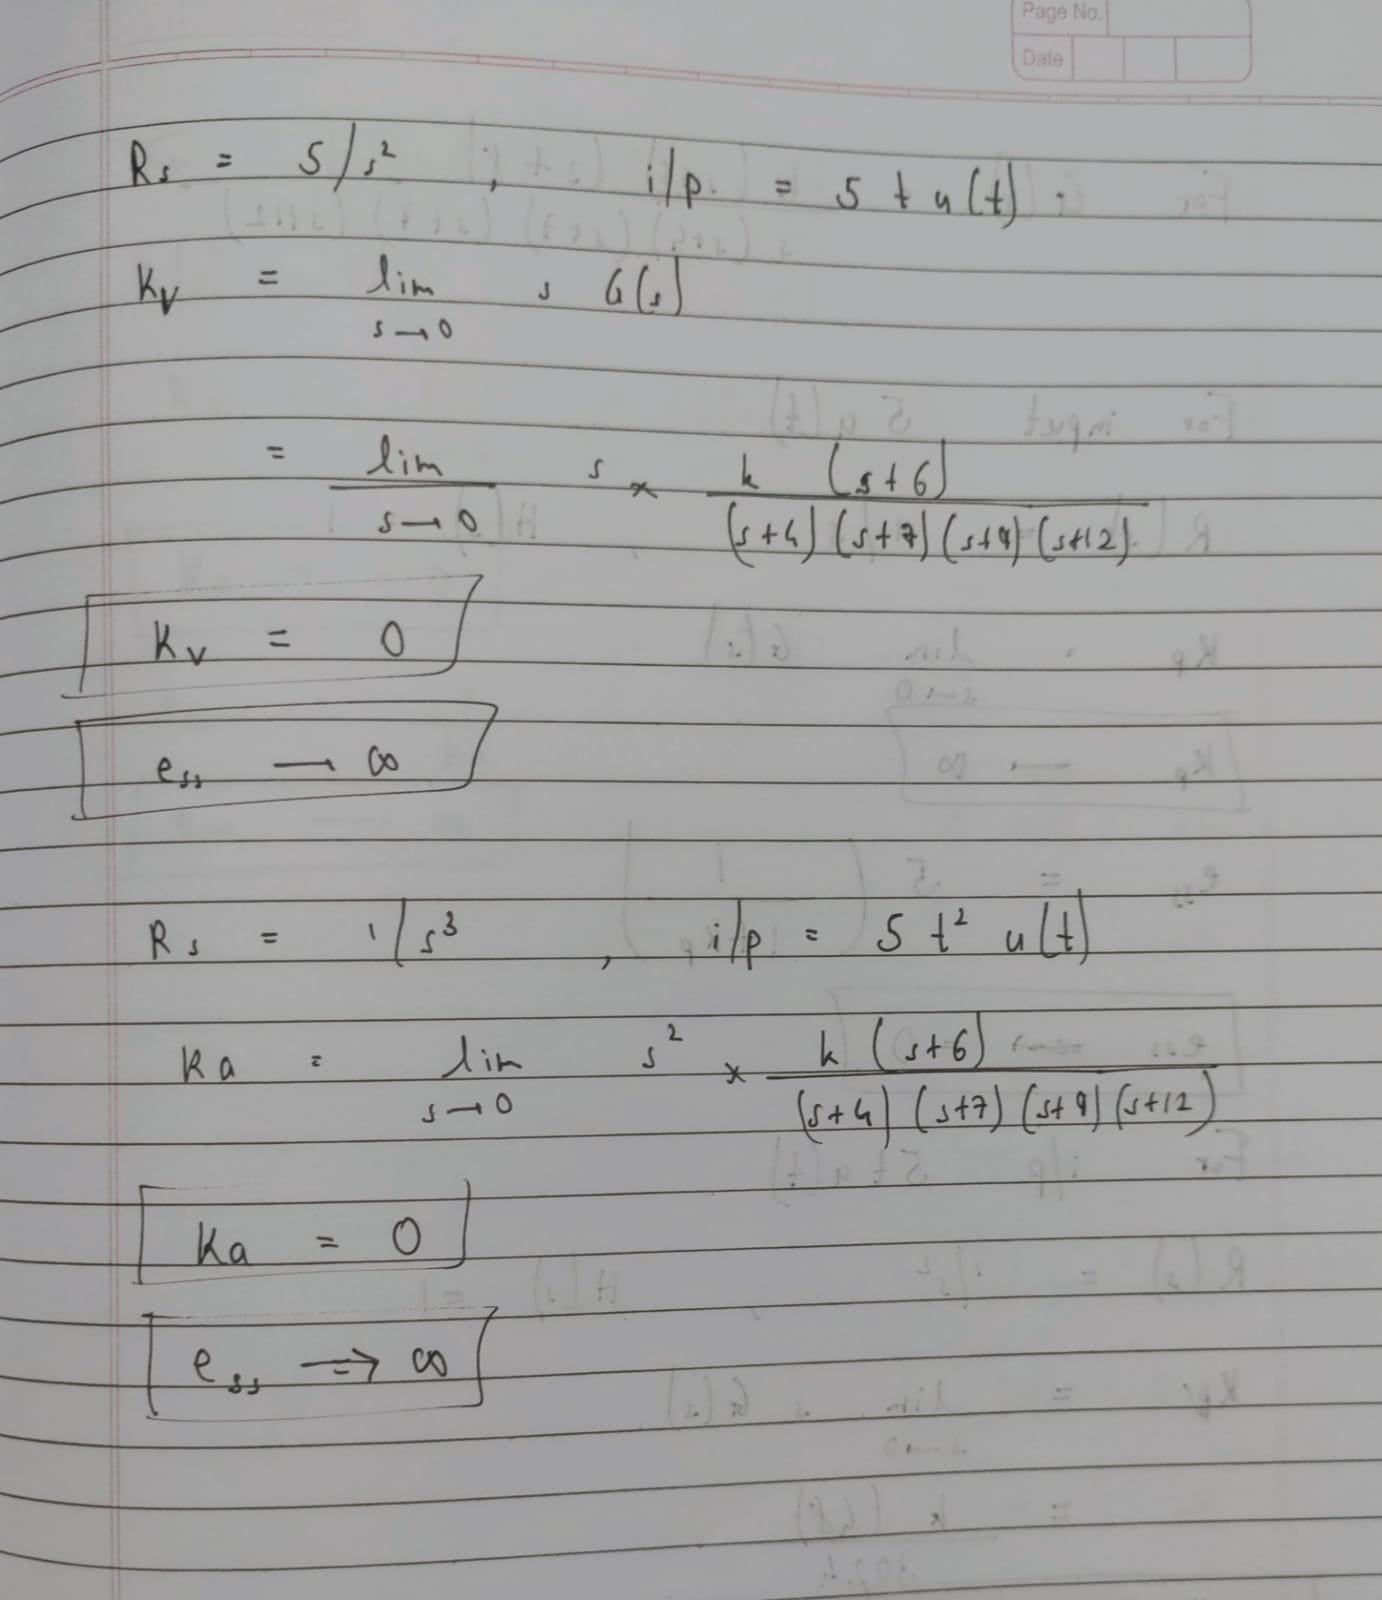 Page No.
Date
Rs = 5/s² , i/p = 5 t u(t).
Kv = lim s→0 s G(s)
= lim s→0 s × k (s+6) / (s+4) (s+7) (s+9) (s+12)
Kv = 0
ess → ∞
Rs = 1/s³ , i/p = 5 t² u(t)
Ka = lim s→0 s² × k (s+6) / (s+4) (s+7) (s+9) (s+12)
Ka = 0
ess → ∞